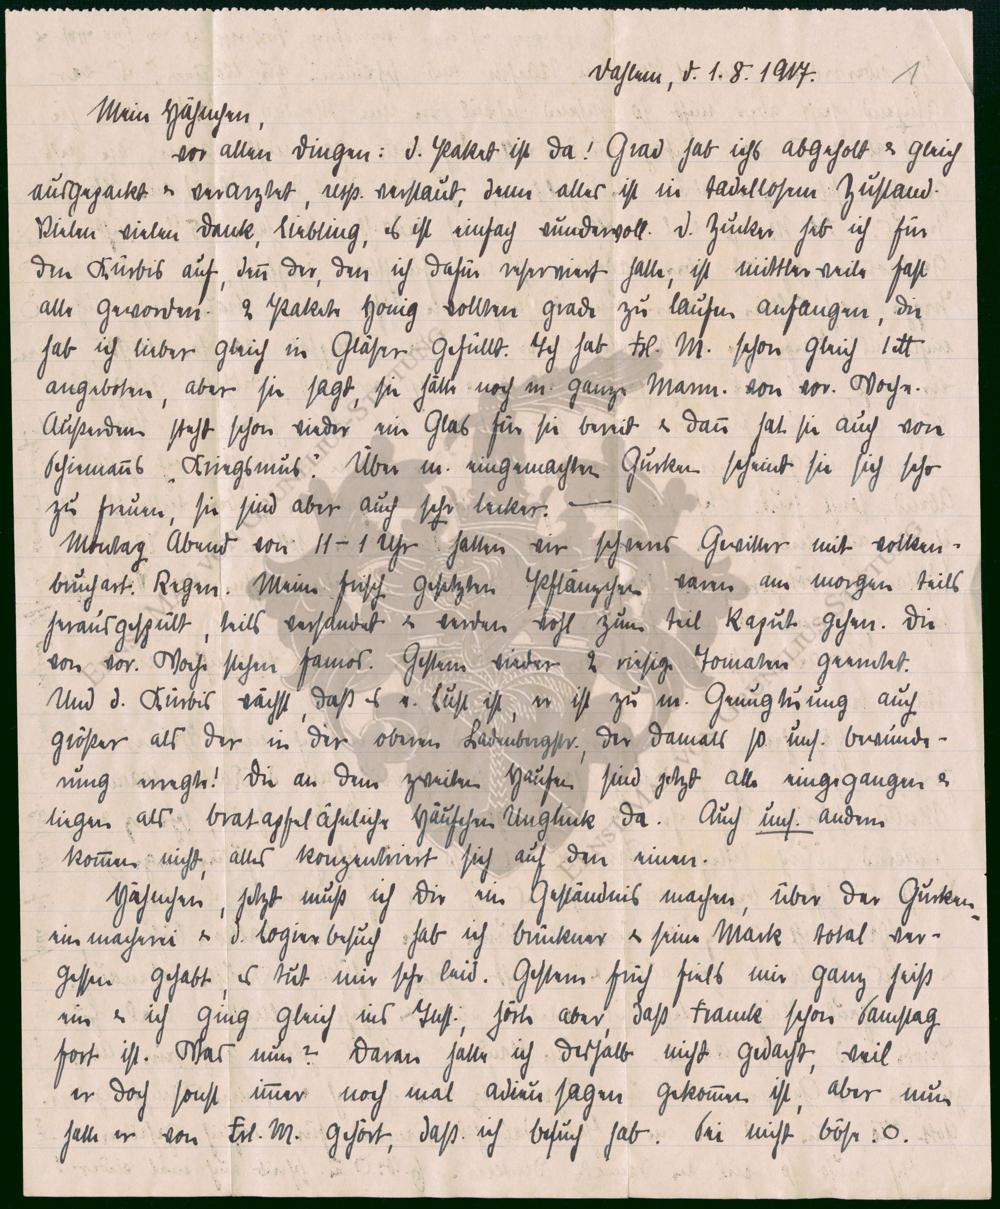 Dahlem, d. 1. 8. 1917. 1
Mein Hähnchen,
vor allen Dingen: d. Paket ist da! Grad hab ichs abgeholt & gleich
ausgepackt & verarztet, resp. verstaut, denn alles ist in tadellosem Zustand.
Vielen vielen Dank, Liebling, es ist einfach wundervoll. d. Zucker heb ich für
den Kürbis auf, deñ der, den ich dafür reserviert hatte, ist mittlerweile fast
alle geworden. 2 Pakete Honig wollten grade zu laufen anfangen, die
hab ich lieber gleich in Gläser gefüllt. Ich hab Frl. M. schon gleich
angeboten, aber sie sagt, sie hätte noch m. ganze Marm. von vor. Woche.
Außerdem steht schon wieder ein Glas für sie bereit & dañ hat sie auch von
Schiemañs "Kriegsmus". Über m. eingemachten Gurken scheint sie sich sehr
zu freuen, sie sind aber auch sehr lecker. —
Montag Abend von 11–1 Uhr hatten wir schweres Gewitter mit wolken-
bruchart. Regen. Meine frisch gesetzten Pflänzchen waren am morgen teils
herausgespült, teils versandet & werden wohl zum teil kaput gehen. Die
von vor. Woche stehen famos. Gestern wieder 2 riesige Tomaten geerntet.
Und d. Kürbis wächst, daß es e. Lust ist, er ist zu m. Genugtuung auch
größer als der in der oberen Ladenbergstr., der damals so uns. bewunde-
rung erregte! Die an dem zweiten Haufen sind jetzt alle eingegangen &
liegen als bratapfelähnliche Häufchen Unglück da. Auch uns. andern
kom̄en nicht, alles konzentriert sich auf den einen.
Hähnchen, jetzt muß ich dir ein Geständnis machen, über der Gurken-
einmacherei & d. Logierbesuch hab ich Brückner & seine Mark total ver-
gessen gehabt, es tut mir sehr leid. Gestern früh fiels mir ganz heiß
ein & ich ging gleich ins Inst., hörte aber, daß Franck schon Samstag
fort ist. Was nun? Daran hatte ich deshalb nicht gedacht, weil
er doch sonst im̄er noch mal adieu sagen gekom̄en ist, aber nun
hatte er von Frl. M. gehört, daß ich besuch hab. Sei nicht böse. O.